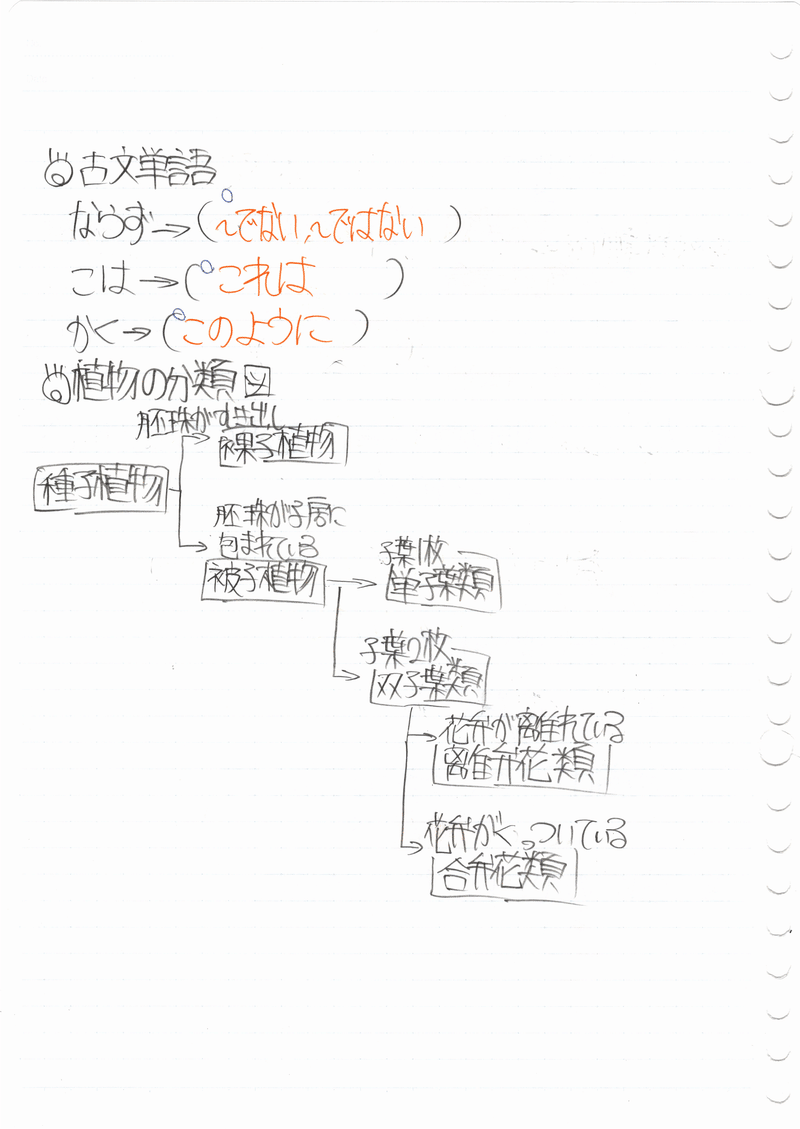 古文単語
ならず→(〜でない、〜ではない)
こは→(これは)
かく→(このように)
植物の分類図
胚珠がむき出し
裸子植物
種子植物
胚珠が子房に
包まれている
被子植物
子葉1枚
単子葉類
子葉2枚
双子葉類
花弁が離れている
離弁花類
花弁がくっついている
合弁花類